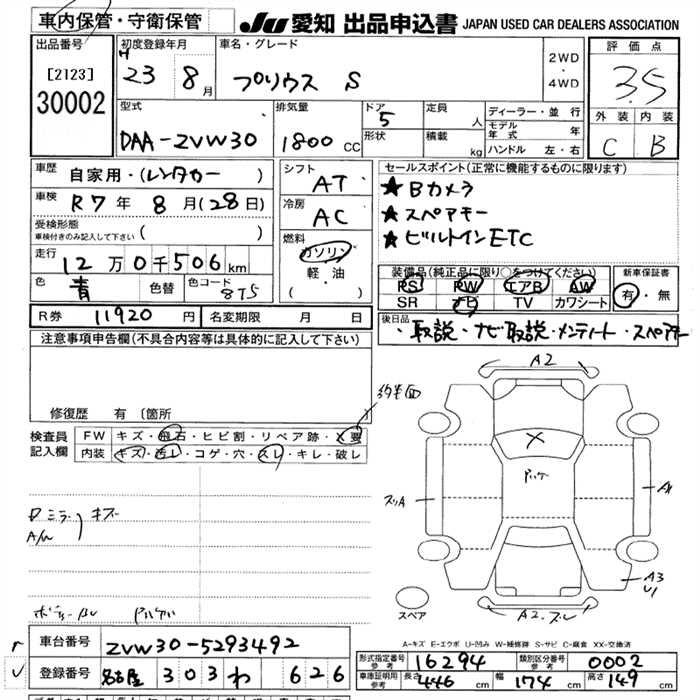 車内保管・守衛保管
JU 愛知 出品申込書 JAPAN USED CAR DEALERS ASSOCIATION
出品番号
[2123]
30002
初度登録年月
H
23 8月
車名・グレード
プリウス S
2WD
・
4WD
評価点
3.5
外装 内装
C B
型式
DAA-ZVW30
排気量
1800 CC
ドア
5
形状
定員
人
積載
kg
ディーラー・並行
モデル年式 年
ハンドル 左・右
車歴
自家用・(レンタカー)
車検
R7年8月(28日)
受検形態
車検付きのみ記入して下さい ( )
走行
12万0千506km
色
青
色替
色コード
8T5
シフト
AT
冷房
AC
燃料
ガソリン
軽油
( ・ )
セールスポイント(正常に機能するものに限ります)
★Bカメラ
★スペアキー
★ビルトインETC
装備品(純正品に限り○をつけてください)
PS PW エアB AW
SR ナビ TV カワシート
新車保証書
有・無
R券 11920円
名変期限 月 日
後日品
・取説・ナビ取説・メンテノート・スペアキー
注意事項申告欄(不具合内容等は具体的に記入して下さい)
修復歴 有 〔箇所
検査員
記入欄
FW キズ・飛石・ヒビ割・リペア跡・X要
内装 キズ・汚レ・コゲ・穴・スレ・キレ・破レ
A2
X
スリA
A1
A3
U1
A2.スレ
スペア
ミラー キズ
A-キズ E-エクボ U-凹み W-補修跡 S-サビ C-腐食 XX-交換済
車台番号 ZVW30-5293492
登録番号 名古屋 303 わ 626
形式指定番号
参考
16294
類別区分番号
参考
0002
車庫証明用
参考
長さ 446cm 幅 174cm 高さ 149cm